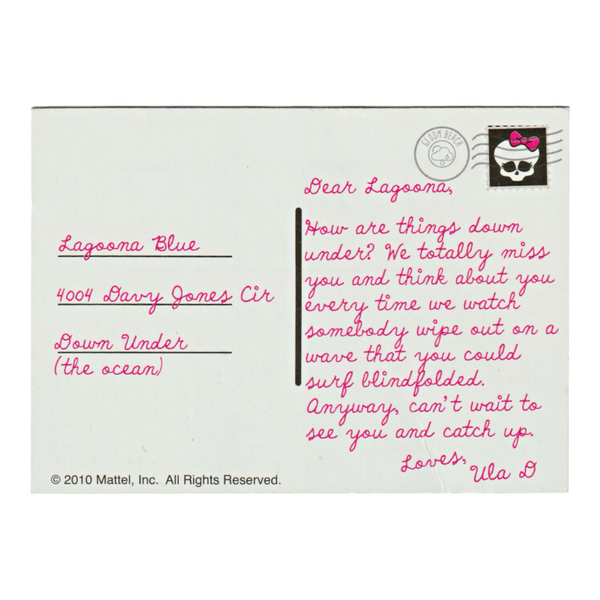 GLOOM BEACH
Dear Lagoona,
How are things down
under? We totally miss
you and think about you
every time we watch
somebody wipe out on a
wave that you could
surf blindfolded.
Anyway, can't wait to
see you and catch up.
Loves,
Ula D
Lagoona Blue
4004 Davy Jones Cir
Down Under
(the ocean)
© 2010 Mattel, Inc. All Rights Reserved.